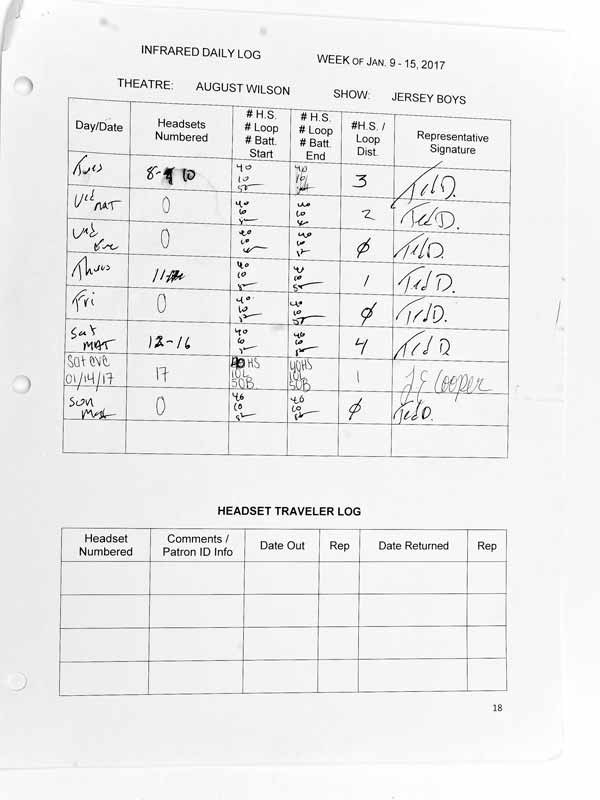 INFRARED DAILY LOG WEEK OF JAN. 9 - 15, 2017
THEATRE: AUGUST WILSON SHOW: JERSEY BOYS
Day/Date
Headsets
Numbered
# H.S.
# Loop
# Batt.
Start
# H.S.
# Loop
# Batt.
End
#H.S. /
Loop
Dist.
Representative
Signature
Tues
8- 10
40
10
50
40
10
3
Ted D.
Wed
MAT
0
40
10
50
40
10
2
Ted D.
Wed
Eve
0
40
10
40
10
50
Ø
Ted D.
Thurs
11
40
10
50
40
10
50
1
Ted D.
Fri
0
40
10
50
40
10
50
Ø
Ted D.
Sat
MAT
12-16
40
10
50
40
10
50
4
Ted D
Sat eve
01/14/17
17
40HS
10L
50B.
40HS
10L
50B
1
J E Cooper
Sun
0
40
10
50
40
10
50
Ø
Ted D.
HEADSET TRAVELER LOG
Headset
Numbered
Comments /
Patron ID Info
Date Out
Rep
Date Returned
Rep
18